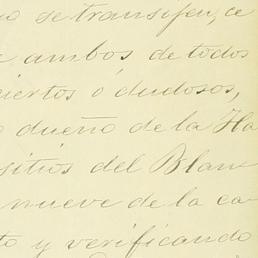 o se transifen, ce
ambos de todos
ciertos ó dudosos,
dueño de la Ha
sitios del Blan
nueve de la ca
to y verificando